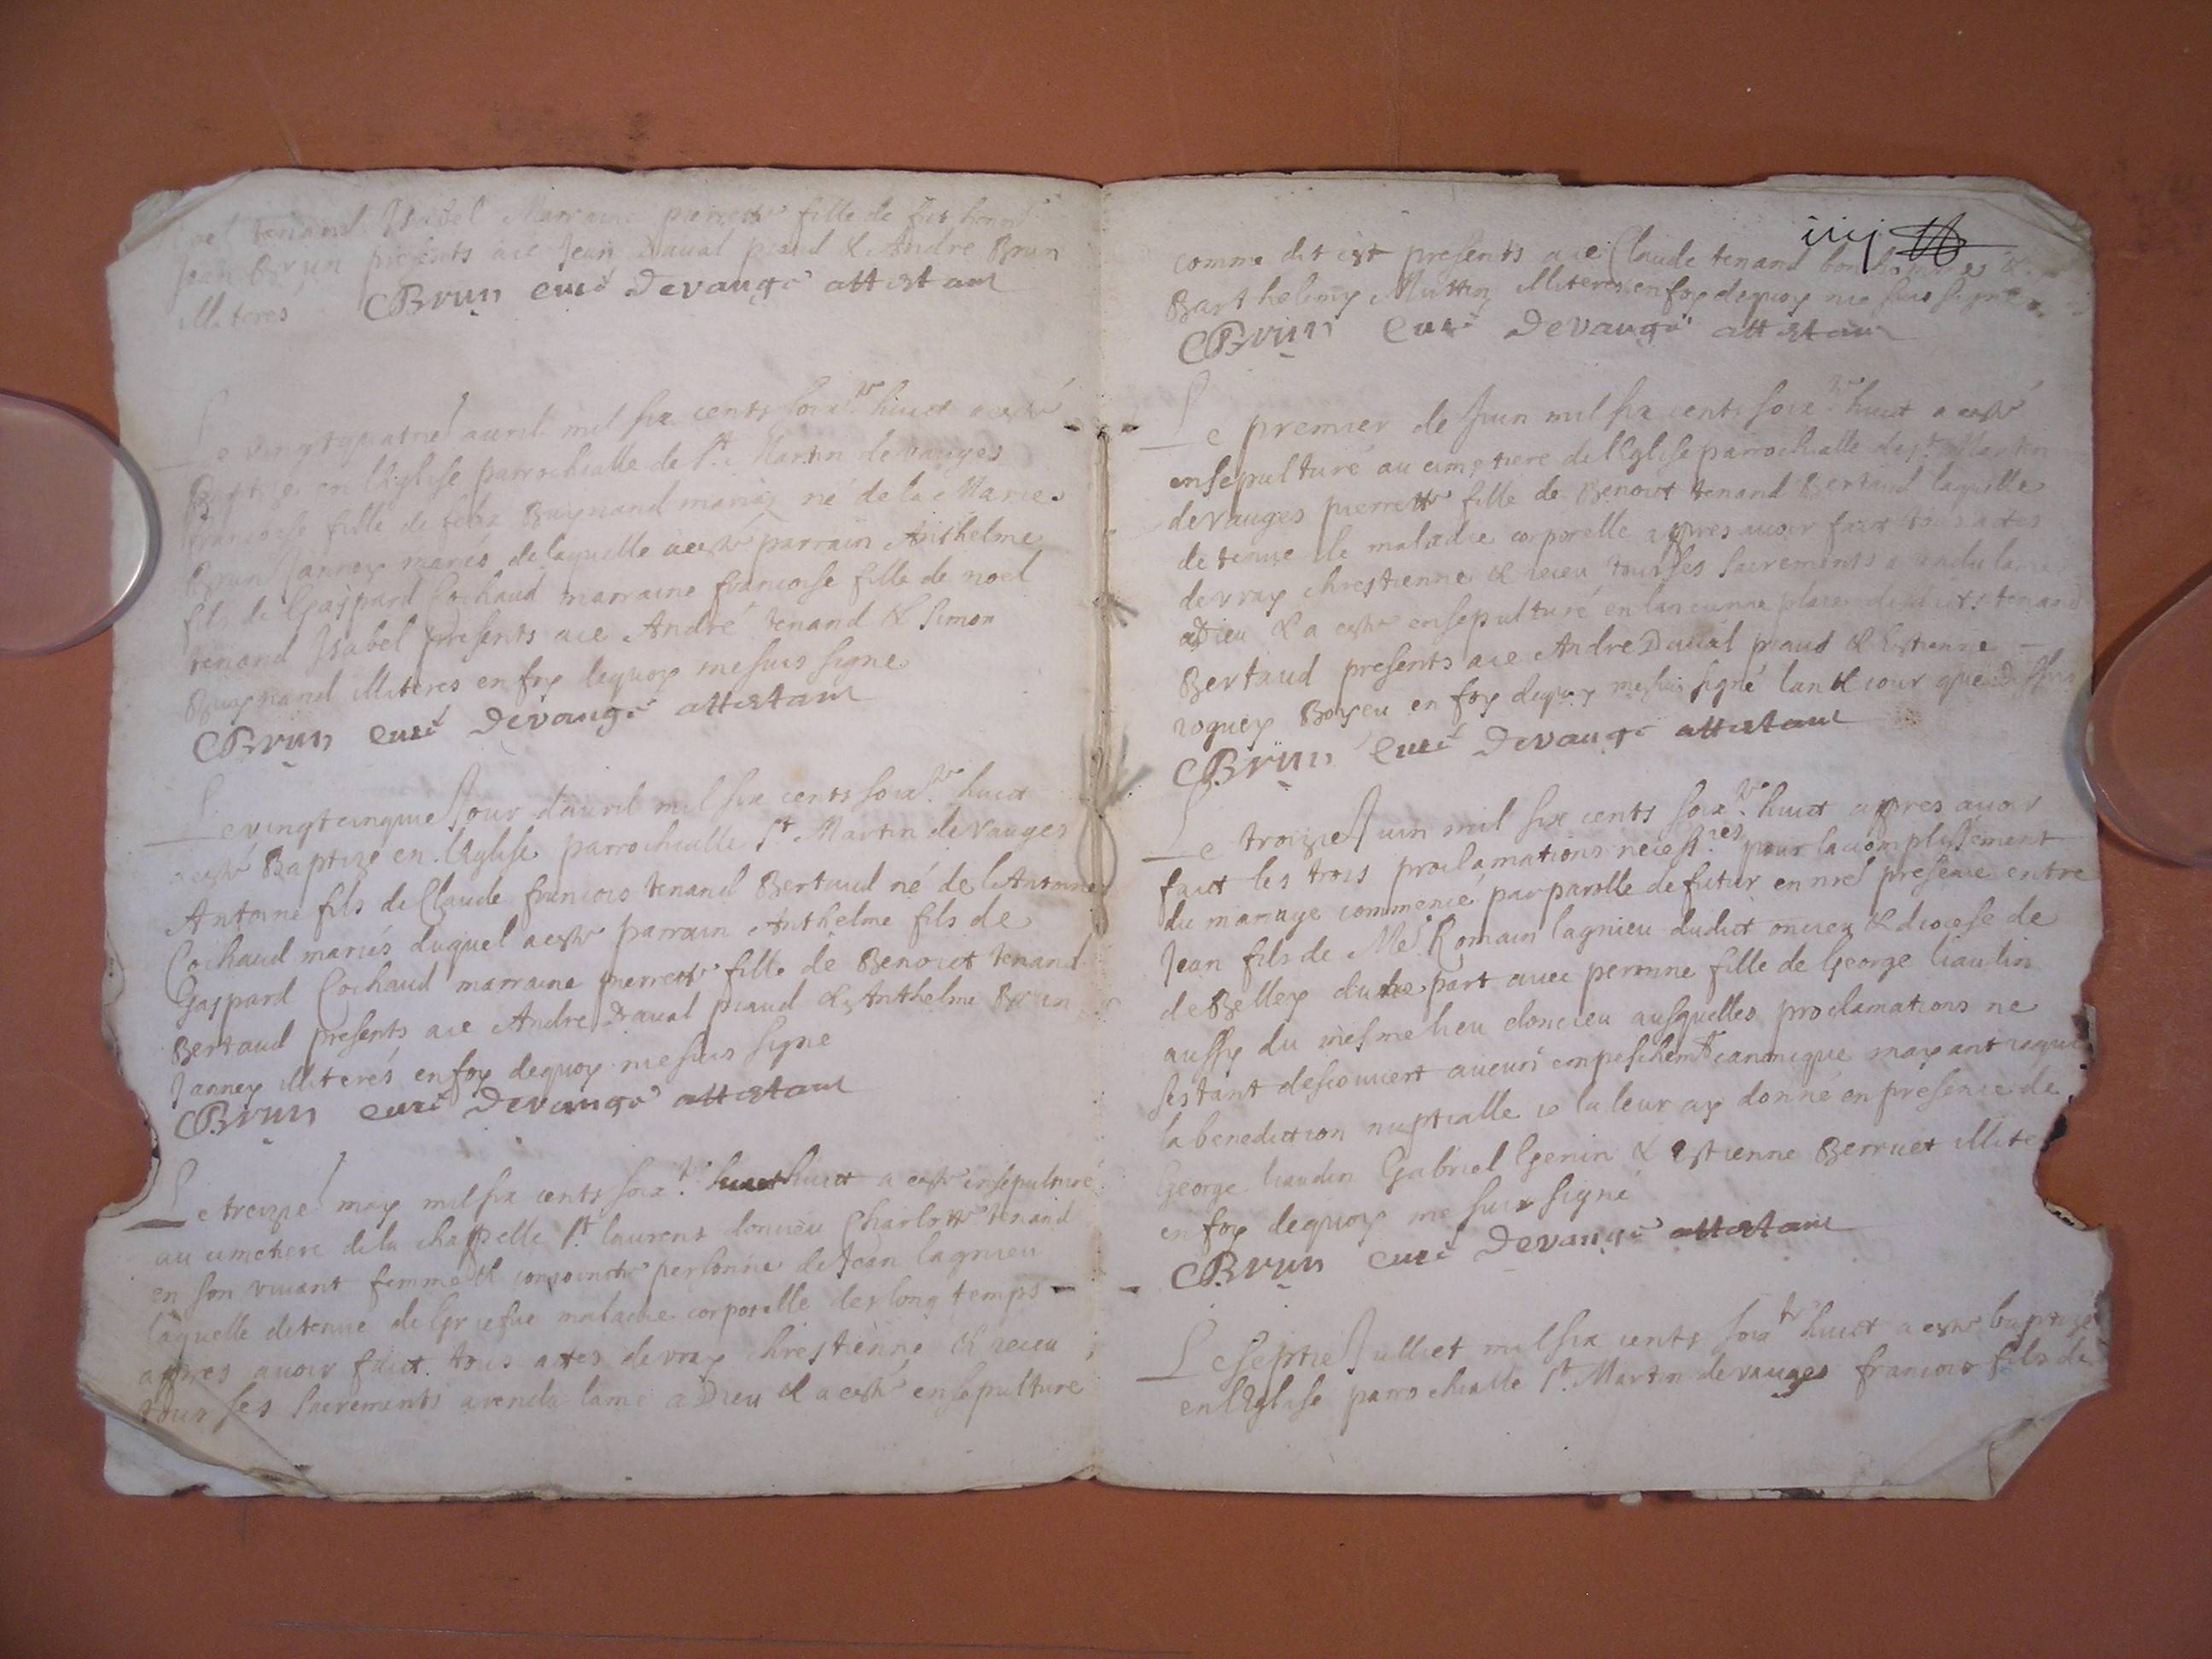 noel tenand Isabel Marraine pierrette fille de feu hono
Jean Brun presents ace Jean Daual praud & Andre Brun
illiteres CBrun curé Devauge attestant
Le vingtquatrie auril mil six cents soix.te huict a esté
Baptize en l'Eglise parrochialle de St. Martin de vauges
francoise fille de felix Buynand mariez né de la Marie
Brun Janney mariés de laquelle a esté parrain Anthelme
fils de Gaspard Cochaud marraine francoise fille de noel
tenand Isabel presents ace André tenand & Simon
Buynand illiteres en foy dequoy me suis signe
CBrun curé Devauge attestant
Le vingtcinquie Jour dauril mil six cents soix.te huict
a esté Baptizé en l'Eglise parrochialle St Martin de vauges
Antoine fils de Claude francois tenand Bertaud né de l'Antoine
Cochaud mariés duquel a esté parrain Anthelme fils de
Gaspard Cochaud marraine pierrette fille de Benoict tenand
Bertaud presents ace Andre Daual praud & Anthelme Brun
Janney illiterés en foy dequoy me suis signe
CBrun curé Devauge attestant
Le treizie may mil six cents soix.te huict a esté ensepulturé
au cimetiere de la chappelle St. laurens doncieu Charlotte tenand
en son viuant femme & conjoincte personne de Jean lagnieu
laquelle detenue de griefue maladie corporelle des long temps
appres auoir faict tous actes de vray chrestienne & receu
tous ses Sacrements a rendu lame a Dieu & a esté ensepulture
iiij
comme dit est presents ace Claude tenand bonhomme &
Barthelemy Muttin illiteres en foy dequoy me suis signe
CBrun Curé Devauge attestant
Le premier de Juin mil six cents soix.te huict a esté
ensepulturé au cimetiere de l'Eglise parrochialle de St. Martin
de vauges pierrette fille de Benoict tenand Bertaud laquelle
detenue de maladie corporelle appres auoir faict tous actes
de vray chrestienne & receu tous ses Sacrements a rendu lame
a Dieu & a esté ensepulturé en lancienne place desdicts tenand
Bertaud presents ace Andre Daual praud & Estienne
roguey Boyeu en foy dequoy me suis signé lan & iour que dessus
CBrun Curé Devauge attestant
Le troizie Juin mil six cents soix.te huict appres auoir
faict les trois proclamations necess.res pour lacomplissement
du mariage commencé par parolle de futur en nre presence entre
Jean fils de Me Romain lagnieu dudict oncieu & diocese de
de Belley dune part auec peronne fille de George liaudin
aussy du mesme lieu doncieu ausquelles proclamations ne
sestant descouuert aucun empeschemt canonique mayant requis
la benediction nuptialle ie la leur ay donné en presence de
George liaudin Gabriel Genin & Estienne Berruet illite
en foy dequoy me suis signé
CBrun curé Devauge attestant
Le septie Juillet mil six cents soixte huict a esté baptizé
en l'Eglise parrochialle St. Martin de vauges francois fils de